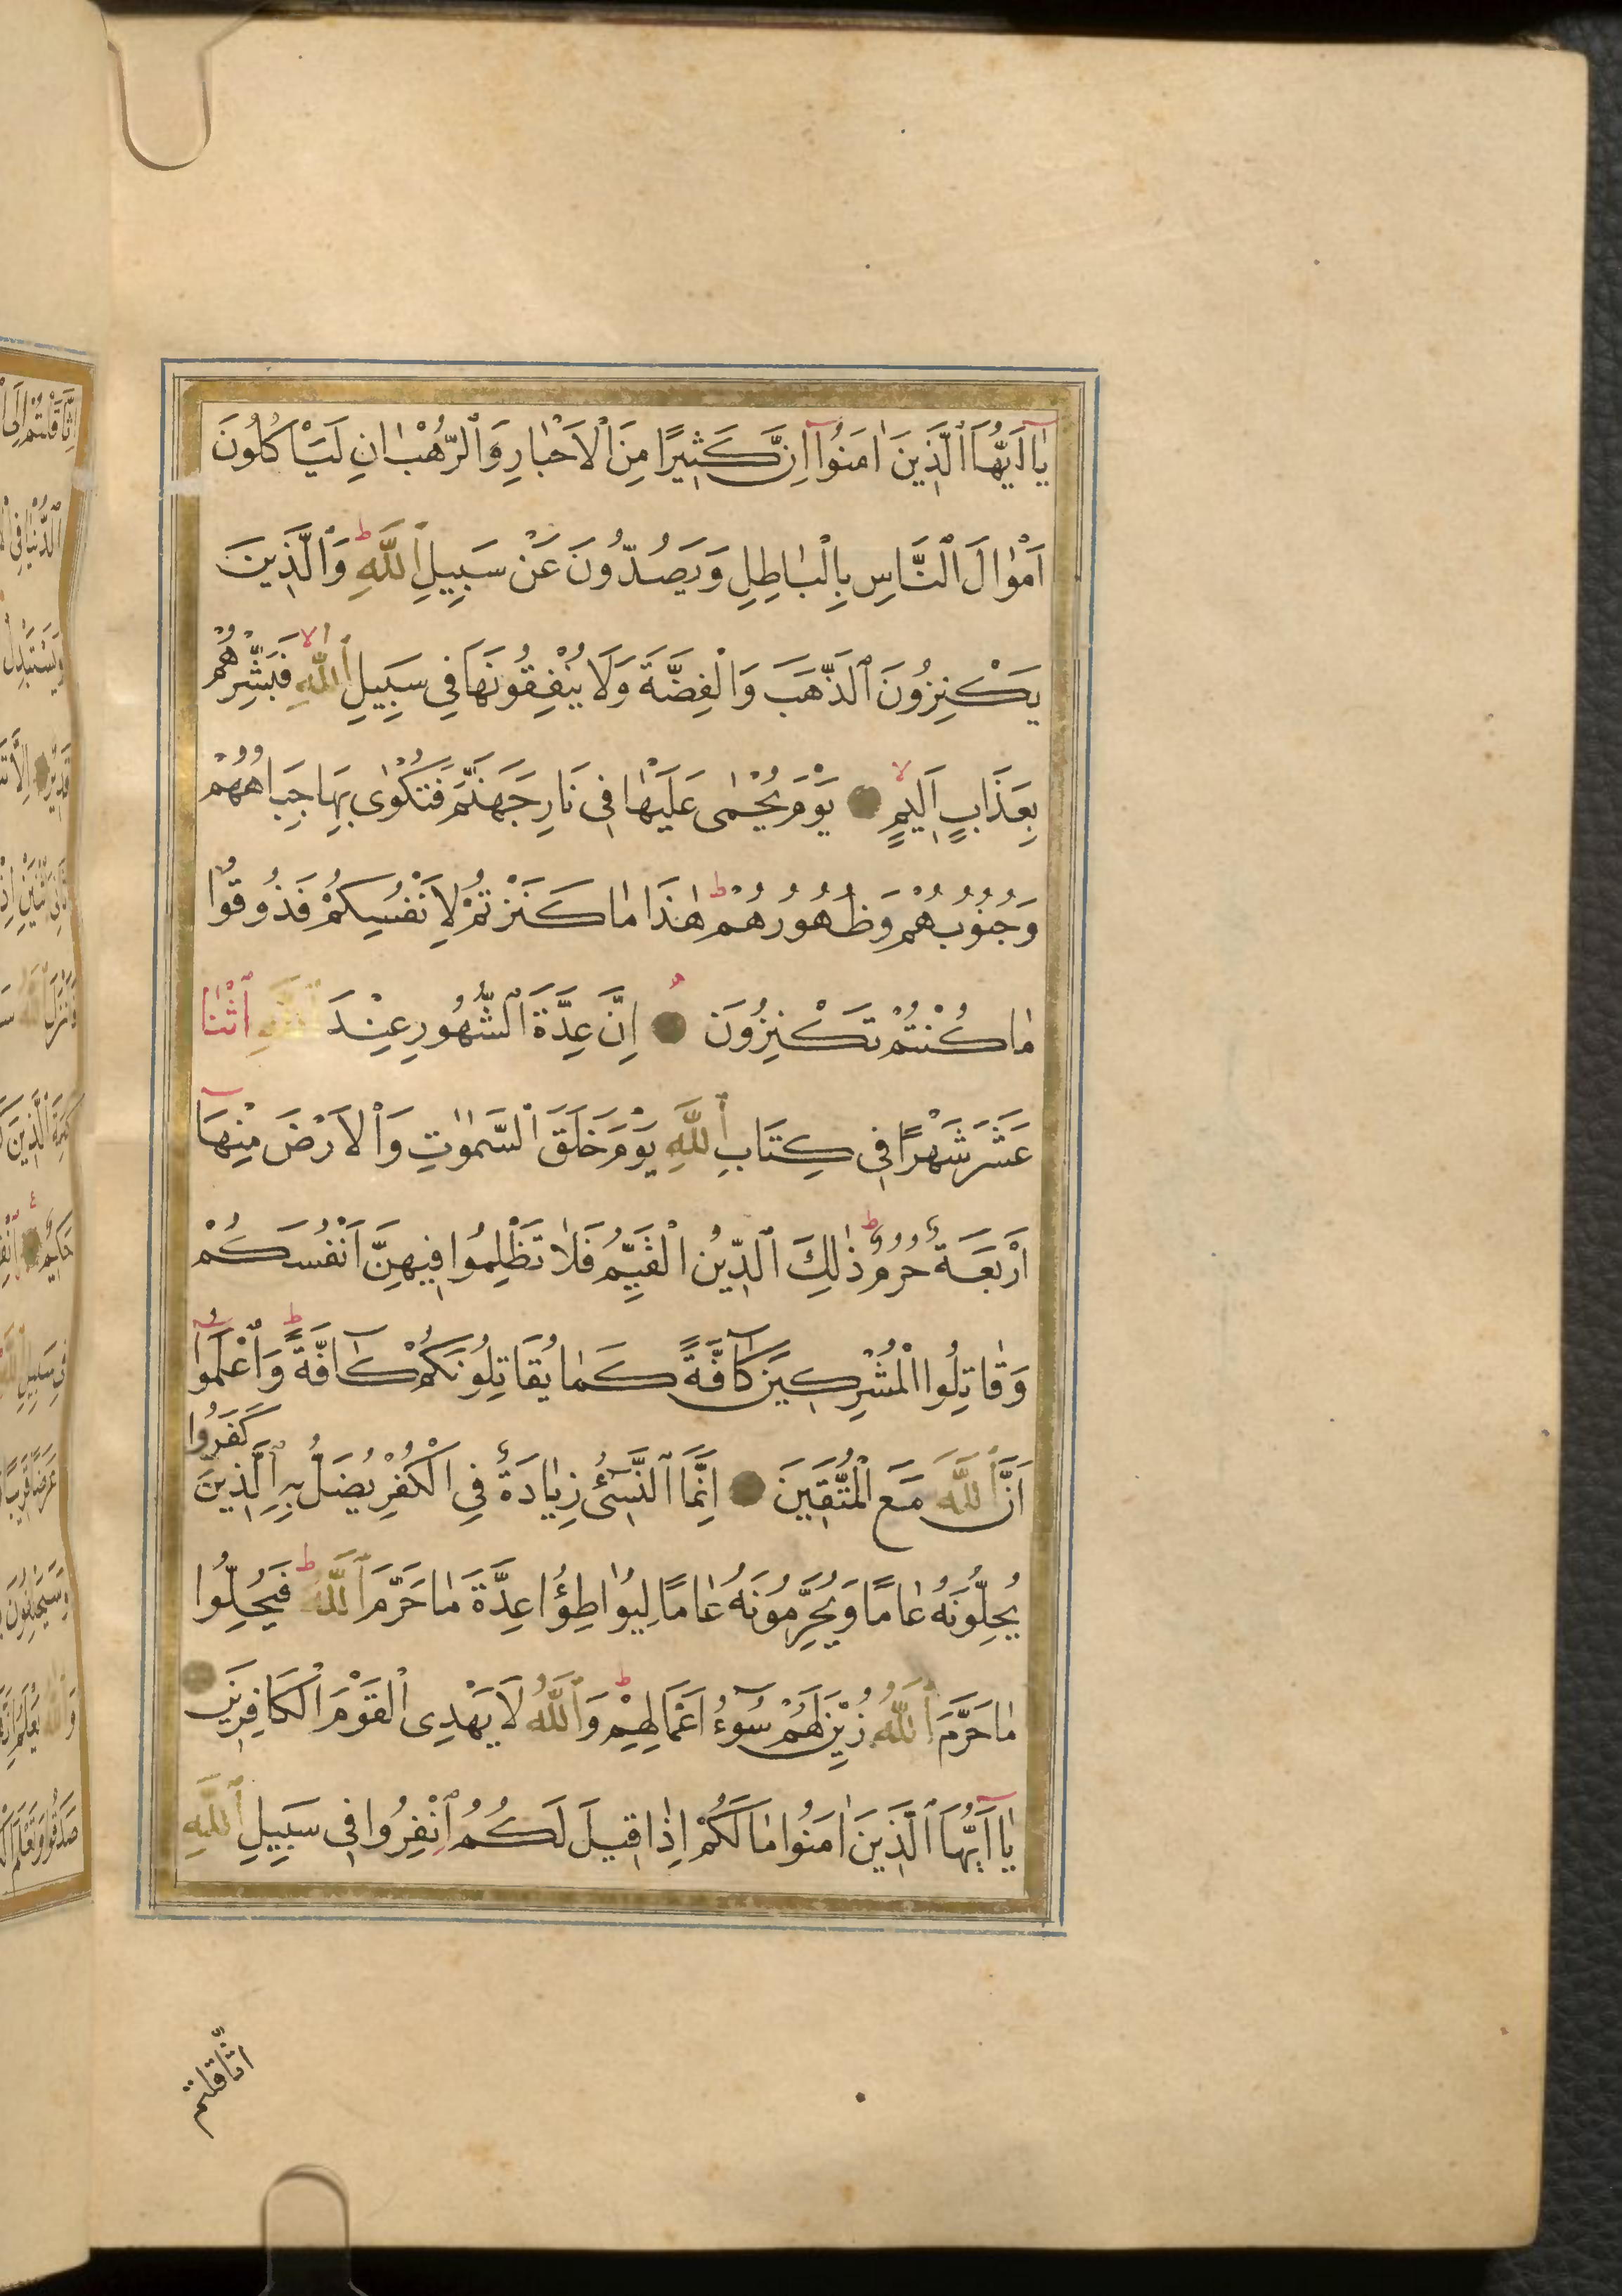 يَا اَيُّهَا الَّذِينَ اٰمَنُوا اِنَّ كَثِيرًا مِنَ الْاَحْبَارِ وَالرُّهْبَانِ لَيَاْكُلُونَ
اَمْوَالَ النَّاسِ بِالْبَاطِلِ وَيَصُدُّونَ عَنْ سَبِيلِ اللَّهِ ط وَالَّذِينَ
يَكْنِزُونَ الذَّهَبَ وَالْفِضَّةَ وَلَا يُنْفِقُونَهَا فِي سَبِيلِ اللَّهِ لا فَبَشِّرْهُمْ
بِعَذَابٍ اَلِيمٍ لا يَوْمَ يُحْمٰى عَلَيْهَا فِي نَارِ جَهَنَّمَ فَتُكْوٰى بِهَا جِبَاهُهُمْ
وَجُنُوبُهُمْ وَظُهُورُهُمْ ط هٰذَا مَا كَنَزْتُمْ لِاَنْفُسِكُمْ فَذُوقُوا
مَا كُنْتُمْ تَكْنِزُونَ اِنَّ عِدَّةَ الشُّهُورِ عِنْدَ اللَّهِ اثْنَا
عَشَرَ شَهْرًا فِي كِتَابِ اللَّهِ يَوْمَ خَلَقَ السَّمٰوٰتِ وَالْاَرْضَ مِنْهَا
اَرْبَعَةٌ حُرُمٌ ط ذٰلِكَ الدِّينُ الْقَيِّمُ فَلَا تَظْلِمُوا فِيهِنَّ اَنْفُسَكُمْ
وَقَاتِلُوا الْمُشْرِكِينَ كَافَّةً كَمَا يُقَاتِلُونَكُمْ كَافَّةً ط وَاعْلَمُوا
اَنَّ اللَّهَ مَعَ الْمُتَّقِينَ اِنَّمَا النَّسِئُ زِيَادَةٌ فِي الْكُفْرِ يُضَلُّ بِهِ الَّذِينَ كَفَرُوا
يُحِلُّونَهُ عَامًا وَيُحَرِّمُونَهُ عَامًا لِيُوَاطِؤُا عِدَّةَ مَا حَرَّمَ اللَّهُ ط فَيُحِلُّوا
مَا حَرَّمَ اللَّهُ زُيِّنَ لَهُمْ سُوءُ اَعْمَالِهِمْ ط وَاللَّهُ لَا يَهْدِى الْقَوْمَ الْكَافِرِينَ
يَا اَيُّهَا الَّذِينَ اٰمَنُوا مَا لَكُمْ اِذَا قِيلَ لَكُمُ انْفِرُوا فِي سَبِيلِ اللَّهِ
اثَّاقلتم